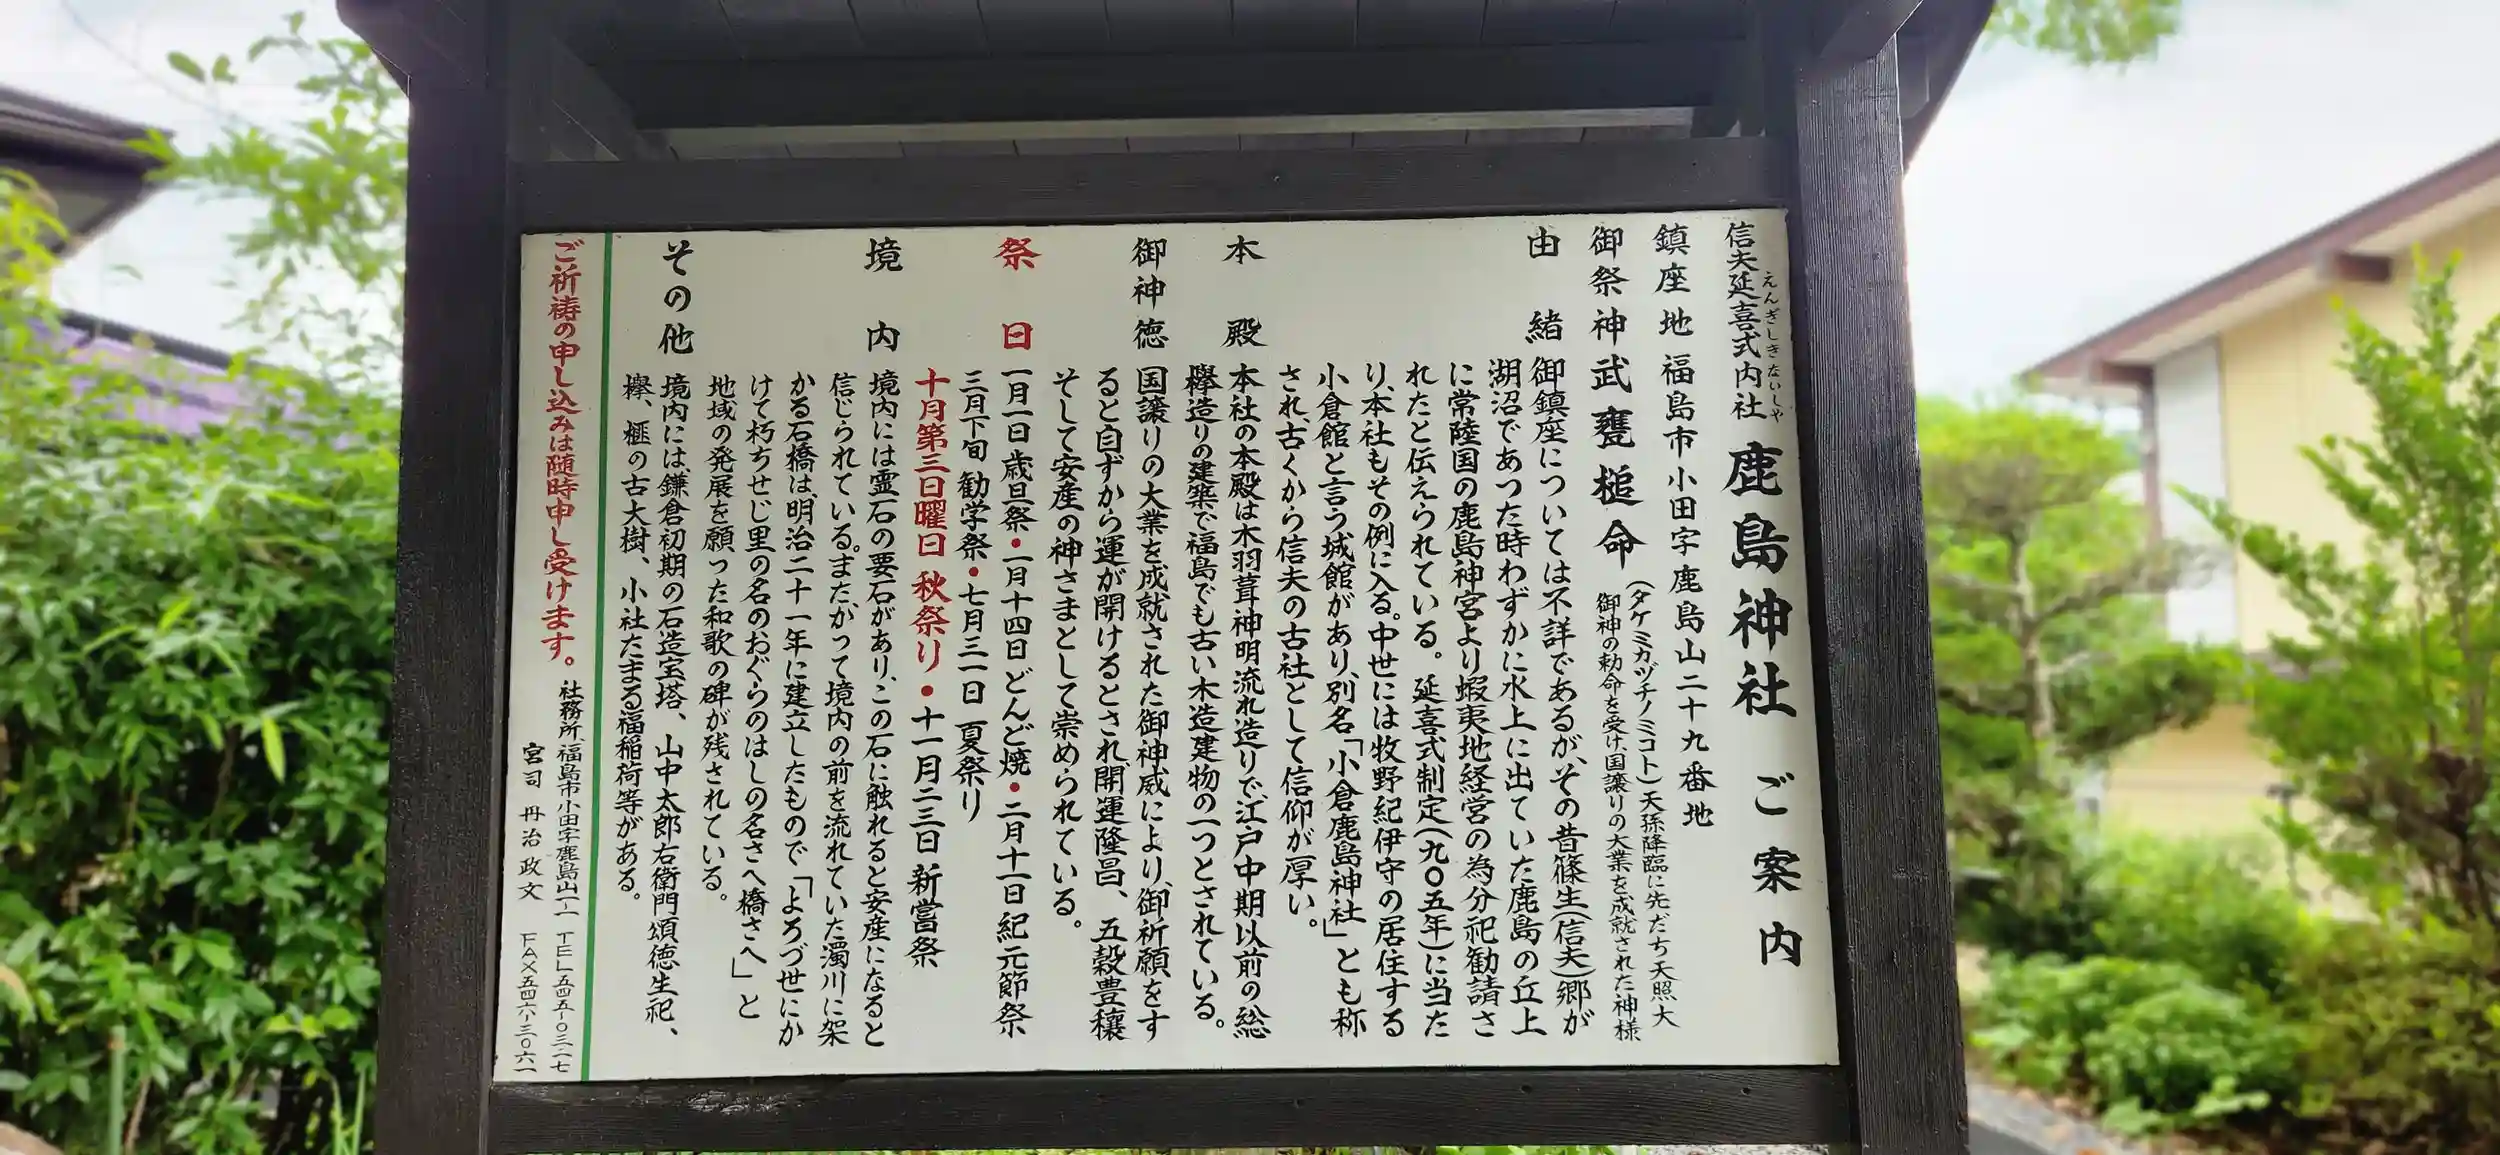 信夫延喜式内社 鹿島神社 ご案内
えんぎしきないしゃ
鎮座地 福島市小田字鹿島山二十九番地
御祭神 武甕槌命 (タケミカヅチノミコト)天孫降臨に先だち天照大
御神の勅命を受け、国譲りの大業を成就された神様
由緒 御鎮座については不詳であるが、その昔篠生(信夫)郷が
湖沼であつた時わずかに水上に出ていた鹿島の丘上
に常陸国の鹿島神宮より蝦夷地経営の為分祀勧請さ
れたと伝えられている。延喜式制定(九〇五年)に当た
り、本社もその例に入る。中世には牧野紀伊守の居住する
小倉館と言う城館があり、別名「小倉鹿島神社」とも称
され、古くから信夫の古社として信仰が厚い。
本殿 本社の本殿は木羽葺神明流れ造りで江戸中期以前の総
欅造りの建築で福島でも古い木造建物の一つとされている。
御神徳 国譲りの大業を成就された御神威により、御祈願をす
ると自ずから運が開けるとされ、開運隆昌、五穀豊穣
そして安産の神さまとして崇められている。
祭日 一月一日歳旦祭・一月十四日どんど焼・二月十一日紀元節祭
三月下旬 勧学祭・七月三一日 夏祭り
十月第三日曜日 秋祭り・十一月二三日 新嘗祭
境内 境内には霊石の要石があり、この石に触れると安産になると
信じられている。またかつて境内の前を流れていた濁川に架
かる石橋は、明治二十一年に建立したもので「よろづ世にか
けて朽ちせじ里の名のおぐらのはしの名さへ橋さへ」と
地域の発展を願った和歌の碑が残されている。
その他 境内には、鎌倉初期の石造宝塔、山中太郎右衛門頌徳生祀、
欅、榧の古大樹、小社たまる福稲荷等がある。
ご祈祷の申し込みは随時申し受けます。
社務所、福島市小田字鹿島山一-一 TEL五四五-〇三二七
宮司 丹治政文 FAX五四六-三〇六一